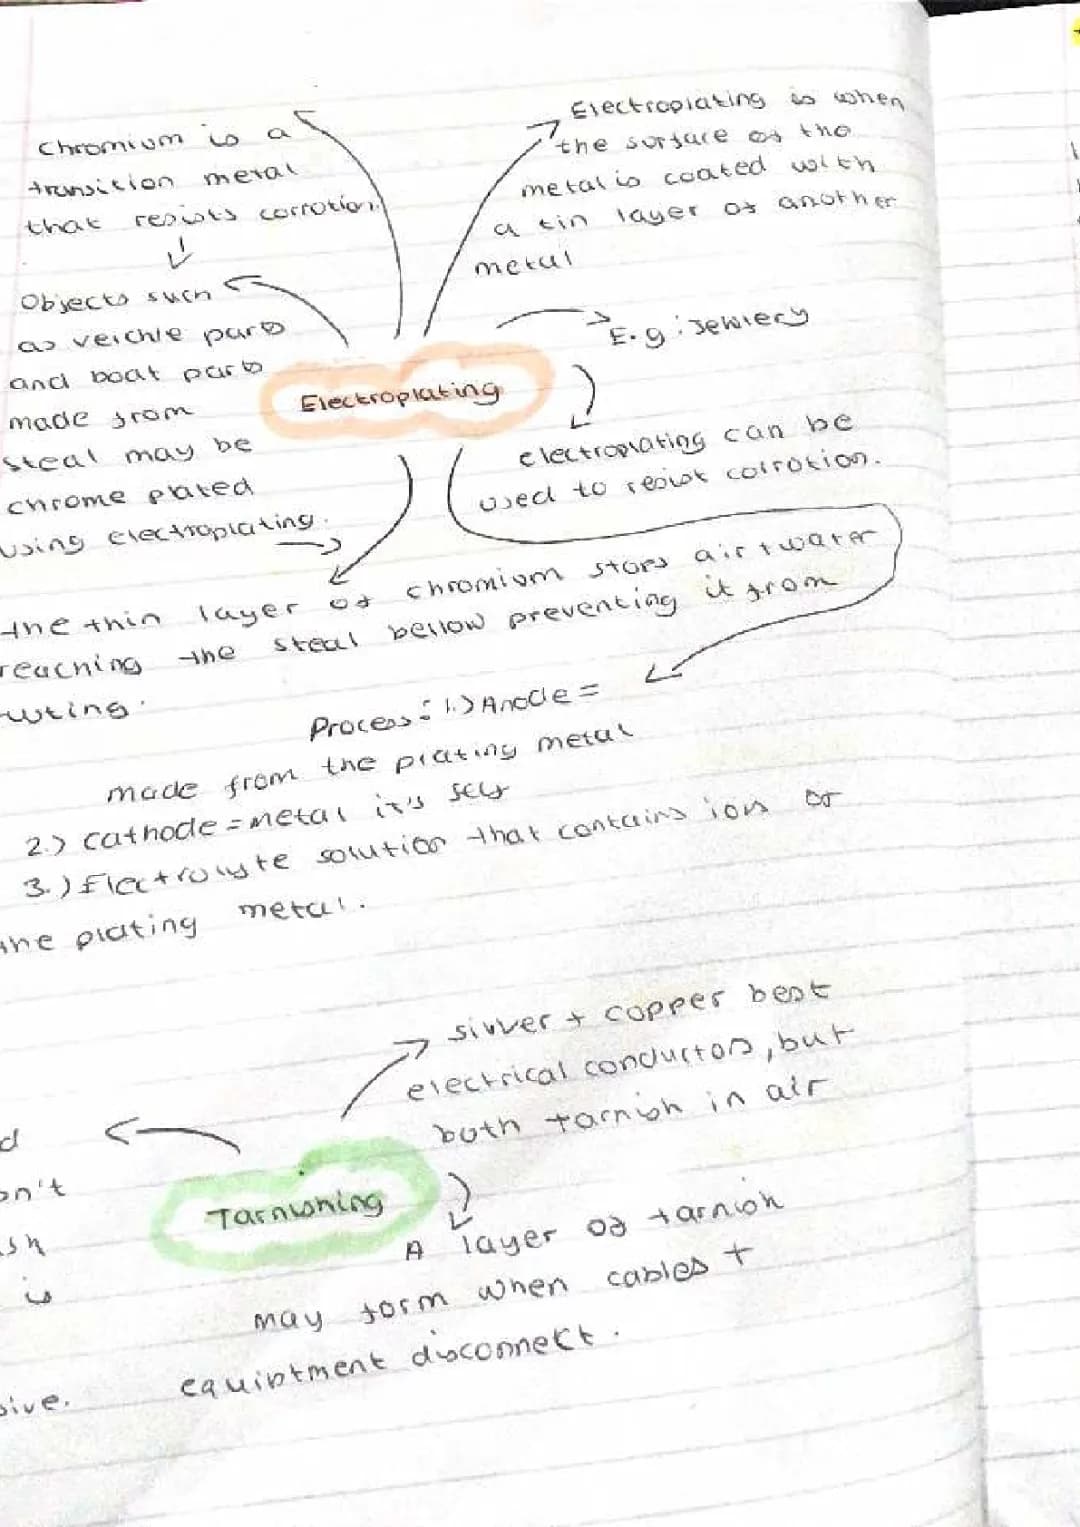 Chromium is a
transition metal
that resists corrotion.
Objects such
as veichle parts
and boat parts
made from
steal may be
chrome plated
using electroplating.
Electroplating is when
the surface of the
metal is coated with
a tin layer of another
metal
E.g : Jewlery
Electroplating
electroplating can be
used to resist corrotion.
the thin layer of chromium stops air + water
reaching the steal bellow preventing it from
Process : 1.) Anode =
made from the plating metal
2.) Cathode = metal it's self
3.) Electrolyte solution that contains ions or
the plating metal.
silver + copper best
electrical conductors, but
both tarnish in air
Tarnishing
A layer of tarnish
may form when cables +
equibtment disconnect.